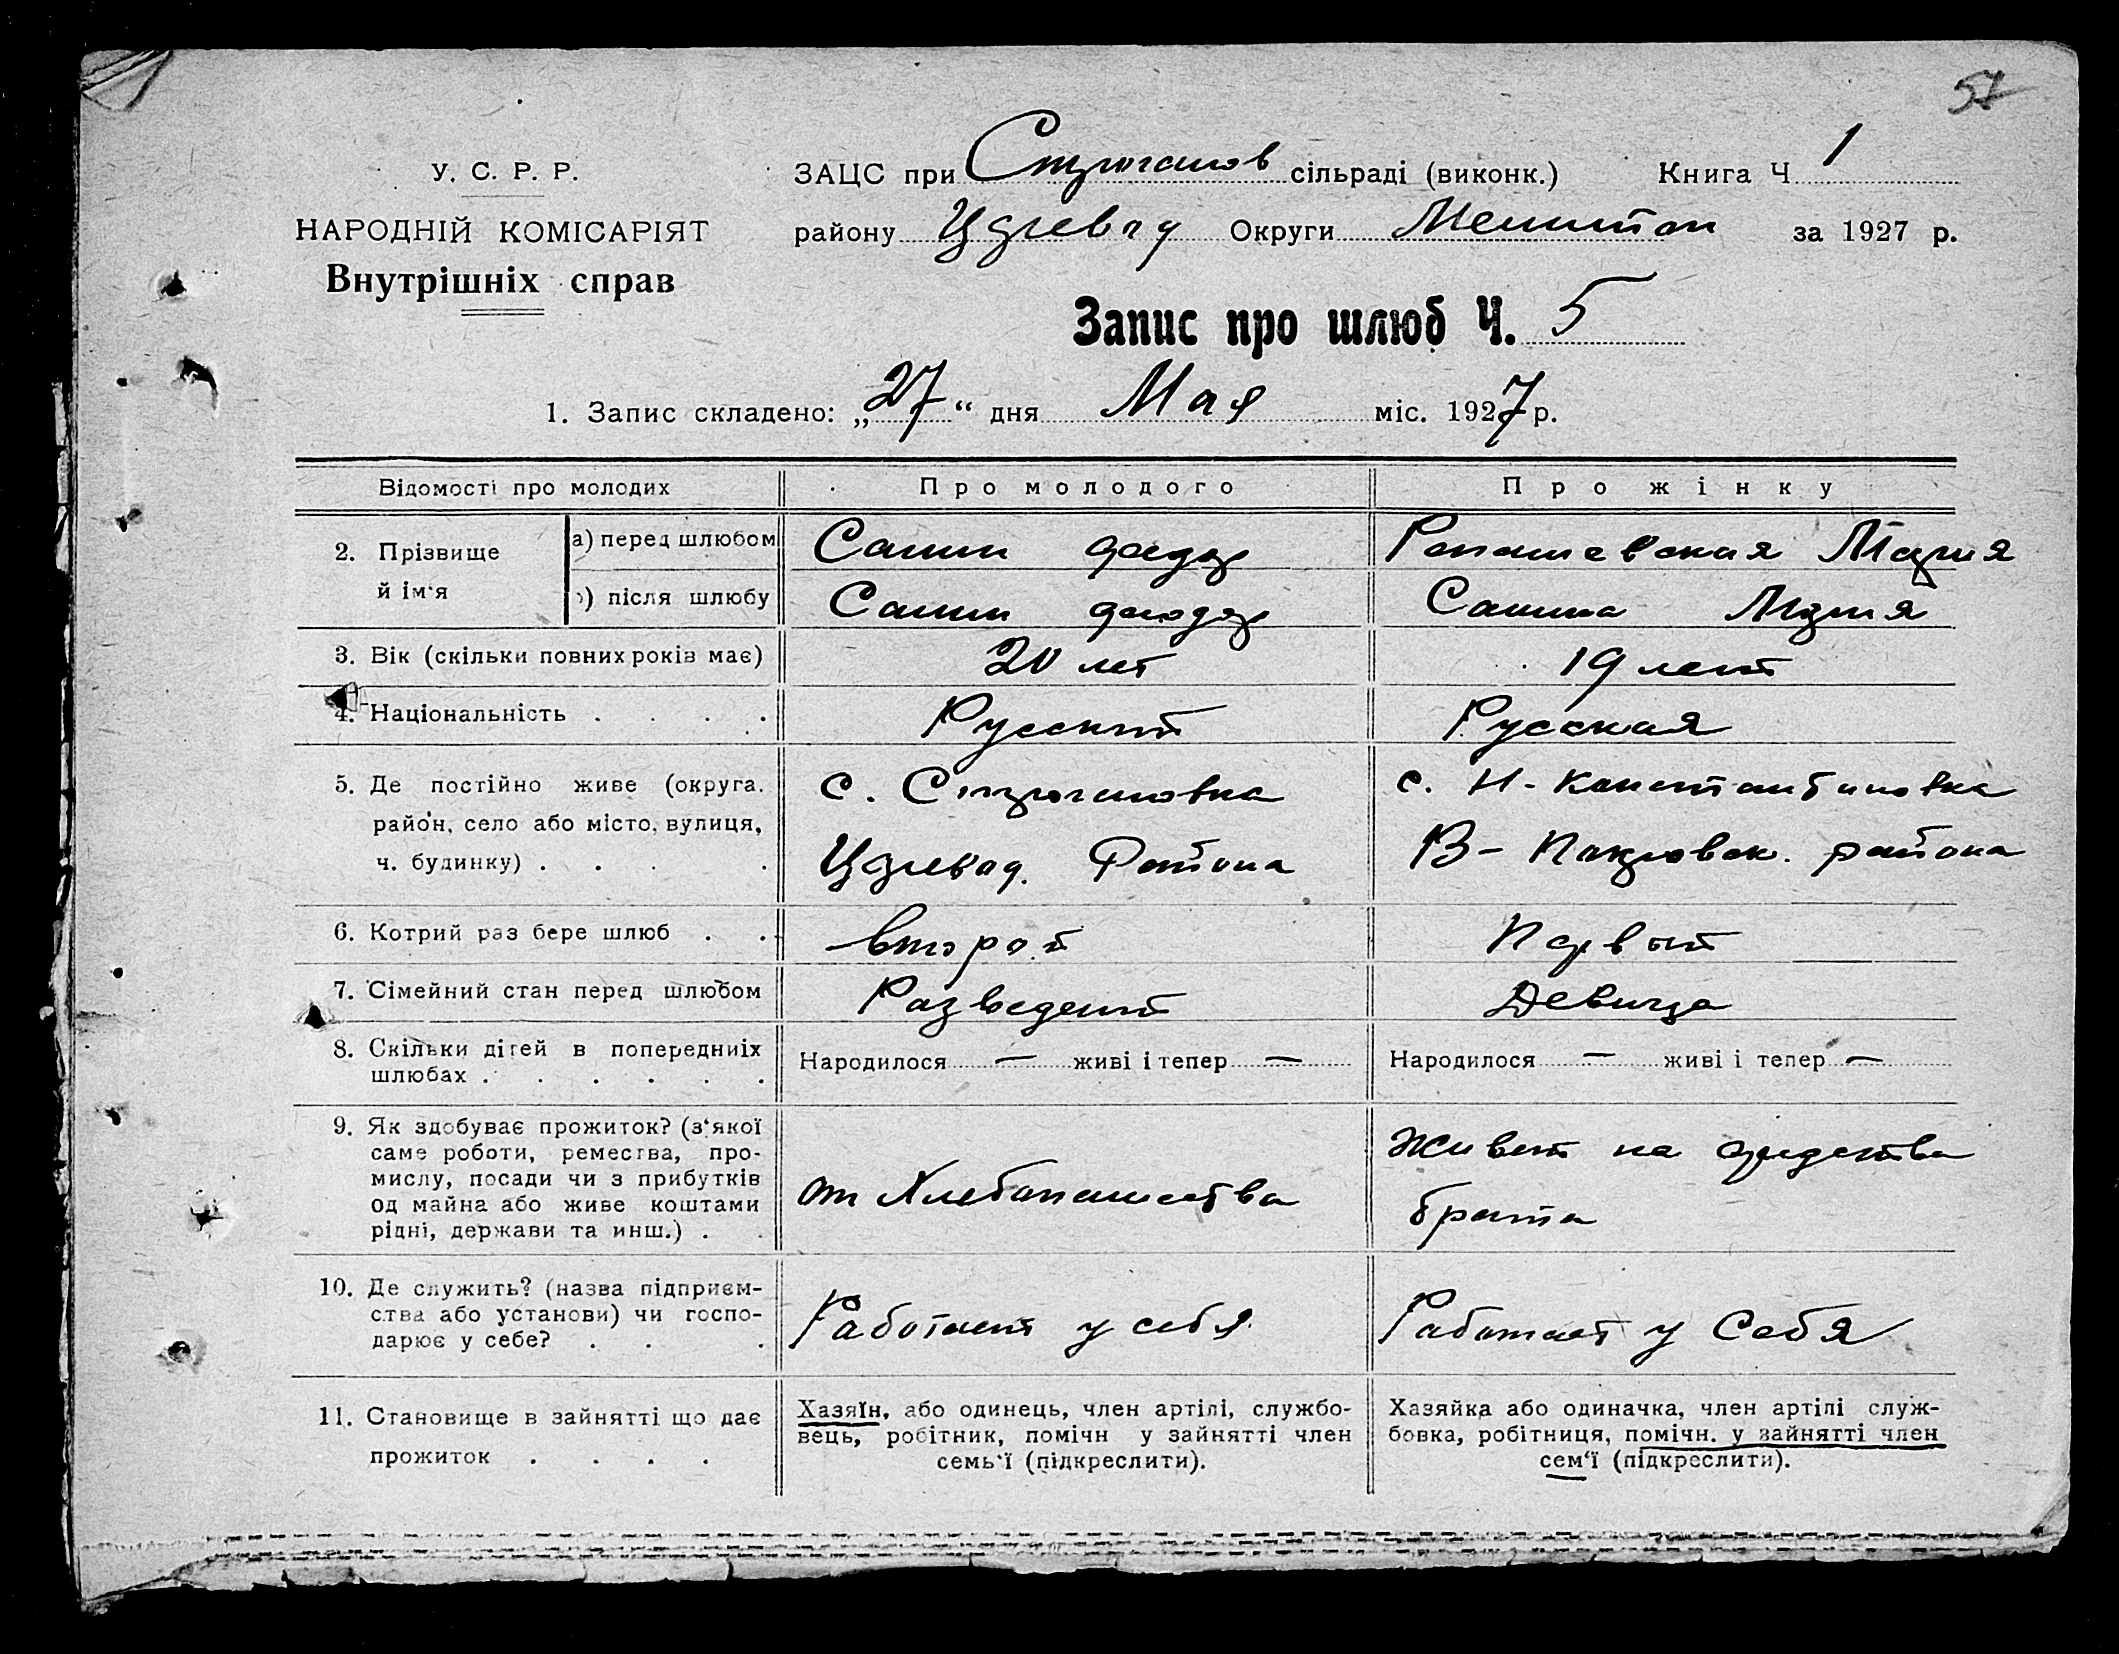 57
У. С. Р. Р.
НАРОДНІЙ КОМІСАРІЯТ
Внутрішніх справ
ЗАЦС при Строганов сільраді (виконк.) Книга Ч. 1
району Царевод Округи Мелитоп за 1927 р.
Запис про шлюб Ч. 5
1. Запис складено: „27“ дня Мая міс. 1927 р.
Відомості про молодих Про молодого Про жінку
2. Прізвище й ім'я
а) перед шлюбом Санин Федор Мария
б) після шлюбу Санин Феодор Санина Мария
3. Вік (скільки повних років має) 20 лет 19 лет
4. Національність . . . . Русский Русская
5. Де постійно живе (округа, район, село або місто, вулиця, ч. будинку) . . . .
с. Строгановка
Царевод. Района
с. Н-Константиновка
В-Покровск. района
6. Котрий раз бере шлюб . . второй Первый
7. Сімейний стан перед шлюбом Разведений Девица
8. Скільки дітей в попередниіх шлюбах . . . . . . Народилося — живі і тепер — Народилося — живі і тепер —
9. Як здобуває прожиток? (з'якої
саме роботи, ремества, про-
мислу, посади чи з прибутків
од майна або живе коштами
рідні, держави та инш.) . .
от Хлебопашества
Живет на средства
брата
10. Де служить? (назва підприєм-
ства або установи) чи госпо-
дарює у себе? . . .
Работает у себя
Работает у Себя
11. Становище в зайнятті що дає
прожиток . . . .
Хазяїн, або одинець, член артілі, службо-
вець, робітник, помічн у зайнятті член
семь'ї (підкреслити).
Хазяйка або одиначка, член артілі служ-
бовка, робітниця, помічн. у зайнятті член
сем'ї (підкреслити).